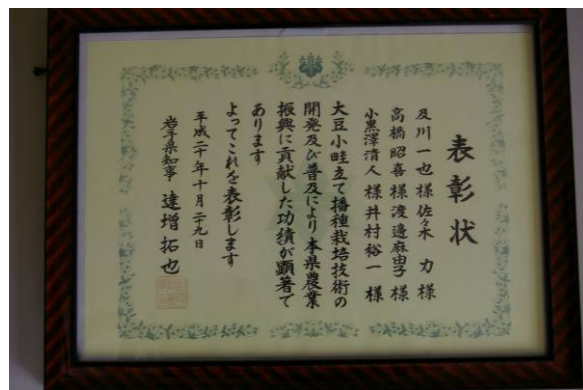 表彰状
及川一也様佐々木力様
高橋昭喜様渡邊麻由子様
小黒澤清人様井村裕一様
大豆小畦立て播種栽培技術の
開発及び普及により本県農業
振興に貢献した功績が顕著で
あります
よってこれを表彰します
平成二十年十月二十九日
岩手県知事 達増拓也